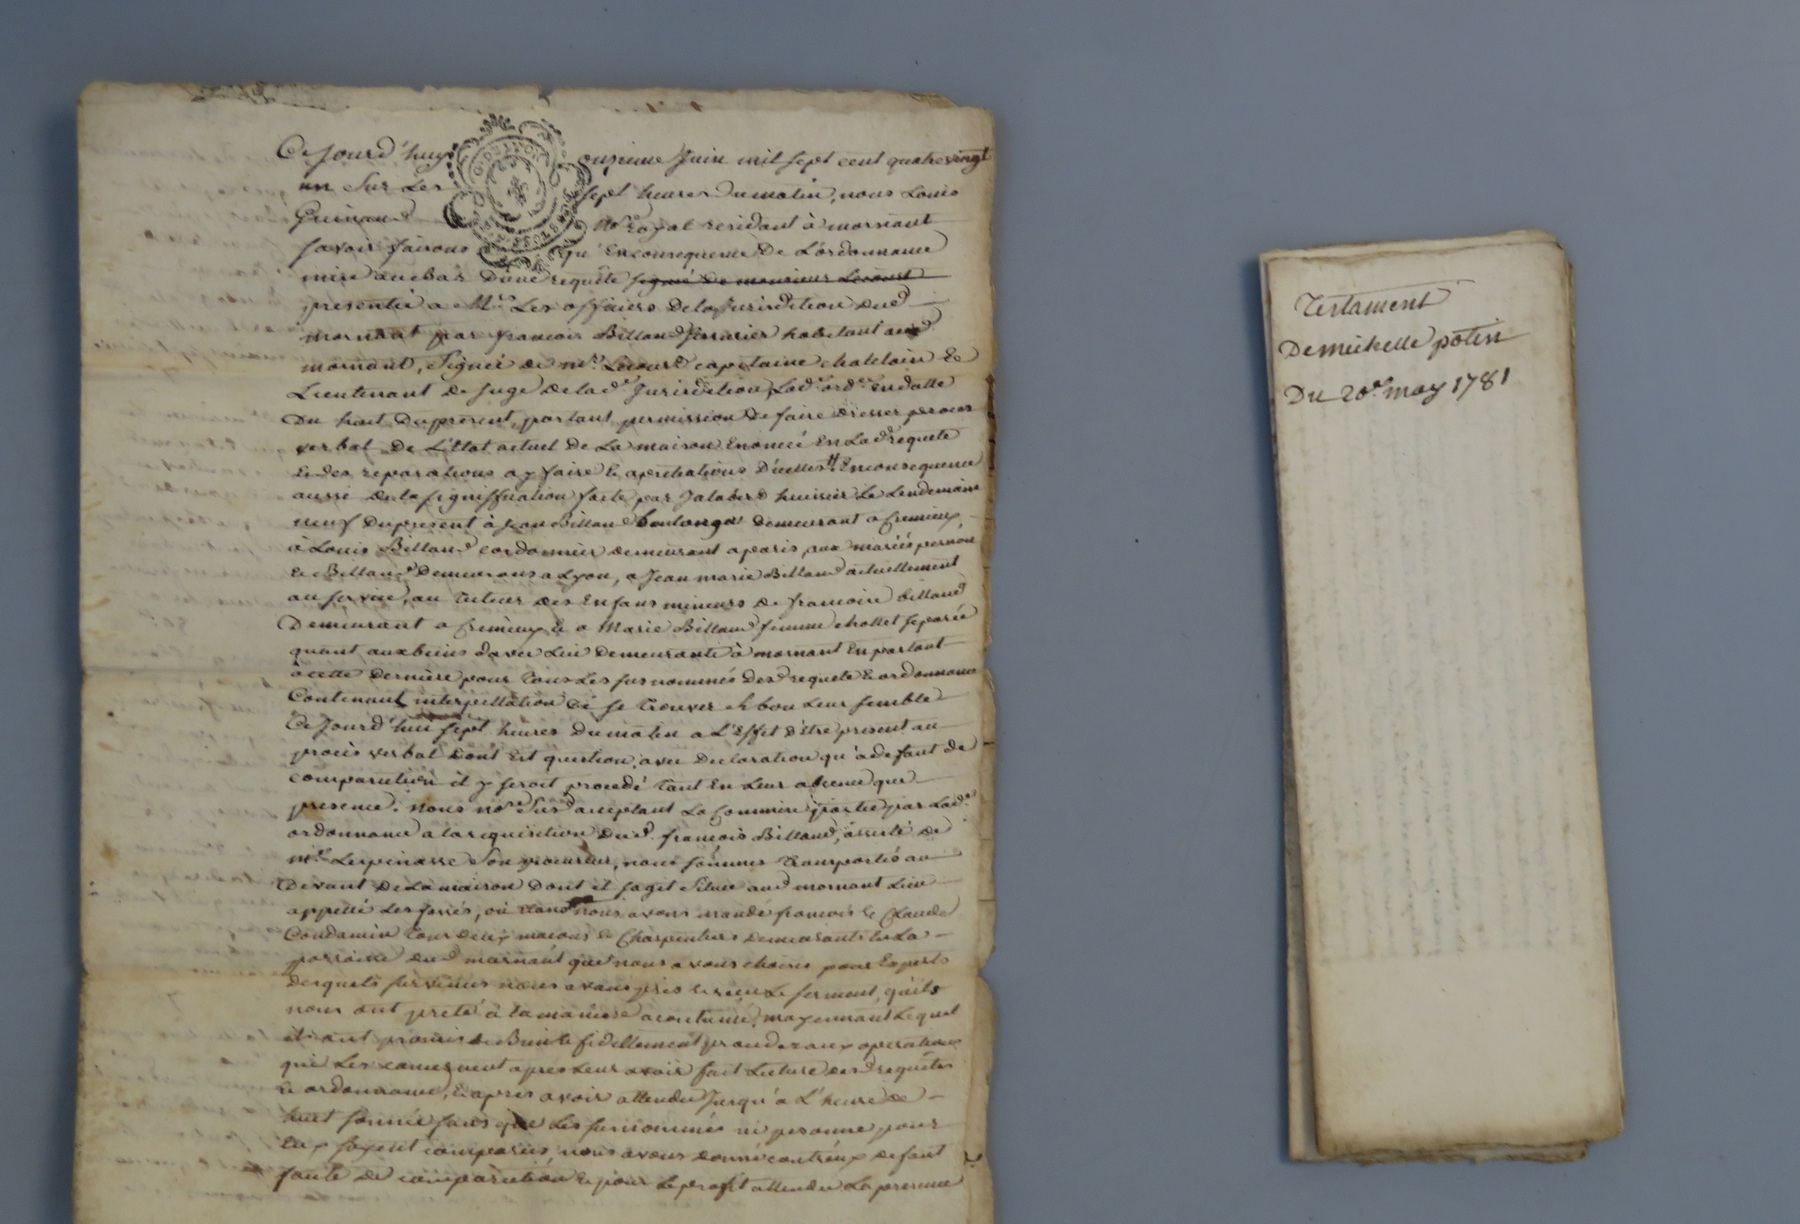 Ce Jourd'huy onzieme Juin mil sept cent quatre vingt
un Sur Les sept heures Du matin, nous Louis
Guinand No.re royal residant à mornant
savoir faisons qu'En consequence De L'ordonnance
mise au bas D'une requête signé De monsieur Lecourt
presentée a M.rs Les officiers De la Jurisdition dud.
mornant par francois Billaud serrurier habitant aud
mornant, Signée de m.r Lecourt capitaine chatelain &
Lieutenant de Juge De lad.e Jurisdition, Lad.e ord.ce en datte
Du huit Du present, portant permission De faire dresser proces
verbal De L'Etat actuel de La maison Enoncée En Lad.e requete
& des reparations a y faire & apretiations D'icelles. En consequence
aussi de la signiffication faite par Jalabert huissier Le Lendemain
neuf Du present à Jean Billaud boulanger demeurant a Cremieux,
à Louis Billaud cordonnier demeurant a paris, aux mariés pernon
& Billaud Demeurans a Lyon, a Jean marie Billaud actuellement
au service, au tuteur des Enfans mineurs de francoise billaud
Demeurant a Cremieux & a Marie Billaud femme chollet separée
quant aux biens d'avec Lui Demeurante à mornant En parlant
a cette derniere pour tous Les susnommés Desd requete & ordonnance
Contenant interpellation de se trouver si bon Leur semble
Ce Jourd'hui sept heures Du matin a L'Effet d'être present au
procès verbal Dont Est question, avec Declaration qu'à defaut de
comparution il y seroit procedé tant En Leur absence que
presence. nous no.re Susd acceptant La Commission portée par Lad.e
ordonnance a la requisition Dud. francois Billaud, assisté de
m.e Lespinasse Son procureur, nous sommes transportés au
Devant De La maison Dont il s'agit Située aud mornant Lieu
appellé Les fossés, où étand nous avons mandé francois & Claude
Condamin tous deux macons & Charpentiers demeurants en La
parroisse dud mornant que nous avons choisis pour Experts
desquels survenus nous avons pris & reçu Le serment, qu'ils
nous ont preté à la maniere acoutumé, moyennant Lequel
ils ont promis de Bien & fidellement proceder aux operations
qui Les concernent apres Leur avoir fait Lecture desd requêtes
& ordonnance, & apres avoir attendu Jusqu'à L'heure de
huit sonnée sans que Les susnommés ni personne pour
Eux soyent comparus, nous avons donné contr'eux defaut
faute de comparution & pour Le profit attendu La presence
Testament
De michelle potin
Du 20.e may 1781